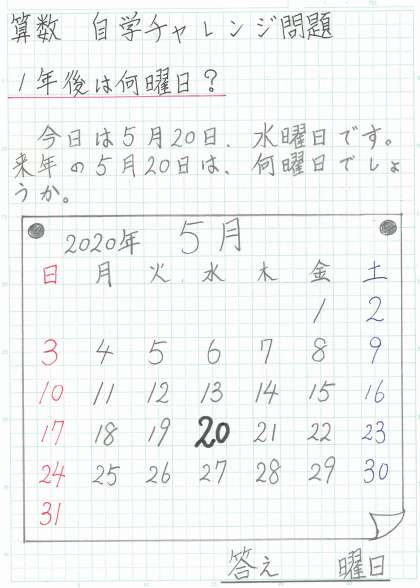 算数 自学チャレンジ問題
1年後は何曜日?
今日は5月20日、水曜日です。
来年の5月20日は、何曜日でしょ
うか。
2020年 5月
日 月 火 水 木 金 土
1 2
3 4 5 6 7 8 9
10 11 12 13 14 15 16
17 18 19 20 21 22 23
24 25 26 27 28 29 30
31
答え 曜日